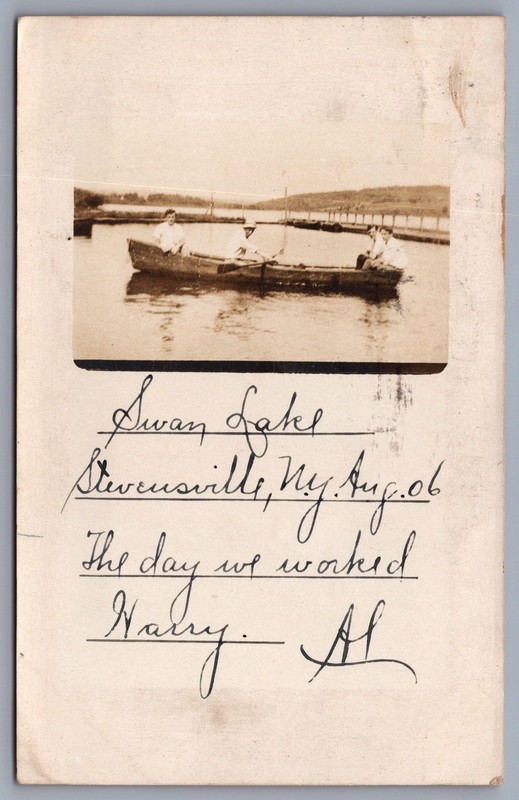 Swan Lake
Stevensville, N.Y. Aug. 06
The day we worked
Harry. Al